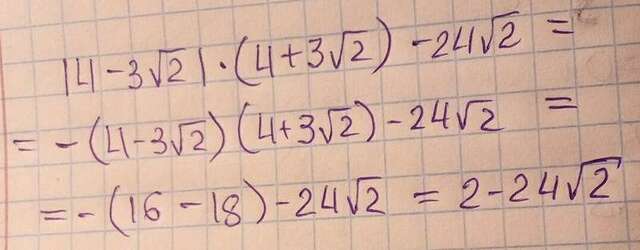 |4-3√2|·(4+3√2)-24√2=
=-(4-3√2)(4+3√2)-24√2=
=-(16-18)-24√2=2-24√2